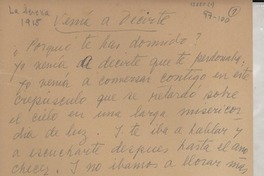 La Serena
1925
Venía a Decirte
¿Porqué te has dormido?
Yo venía a decirte que te perdonaba
Yo venía a comenzar contigo en este
crepúsculo que se retardó sobre
el cielo en una larga misericor
dia de luz. I te iba a hablar y
a escucharte despues hasta el ano
checer. I no ibamos a llorar más